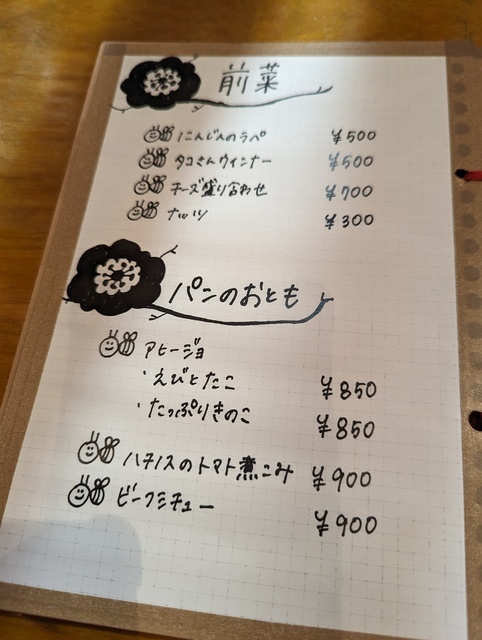 前菜
にんじんのラペ ¥500
タコさんウィンナー ¥500
チーズ盛り合わせ ¥700
ナッツ ¥300
パンのおとも
アヒージョ
・えびとたこ ¥850
・たっぷりきのこ ¥850
ハチノスのトマト煮こみ ¥900
ビーフシチュー ¥900